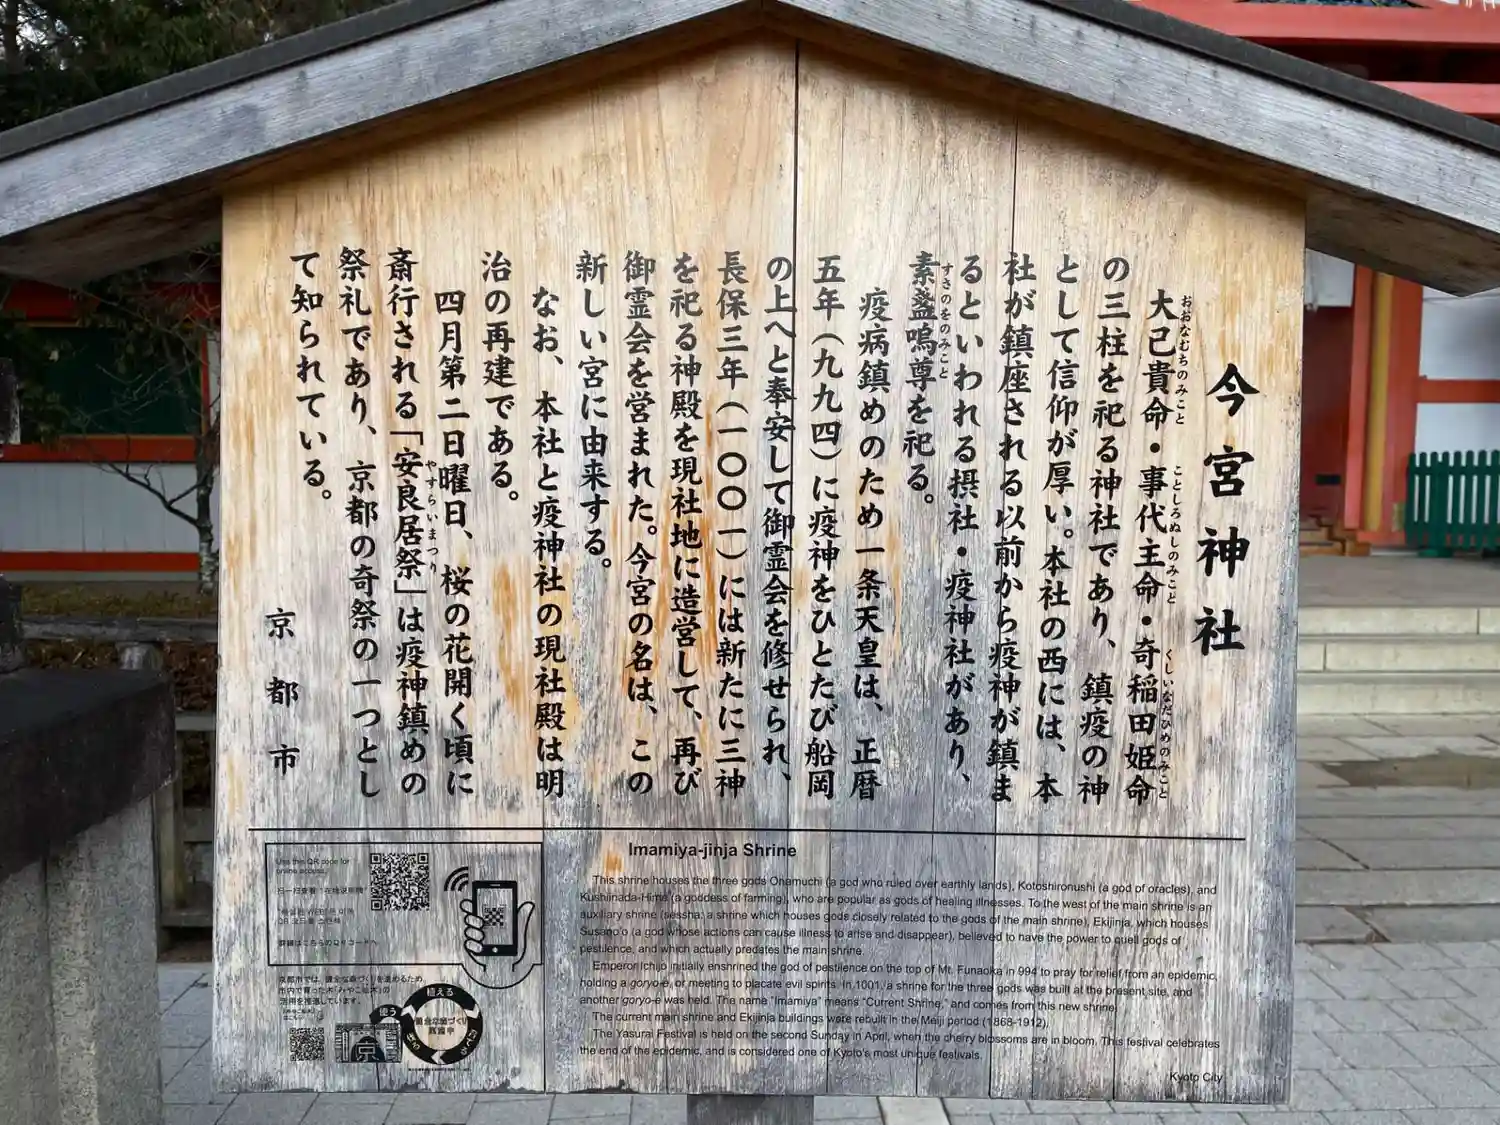 今宮神社
大己貴命・事代主命・奇稲田姫命
おおなむちのみこと
ことしろぬしのみこと
くしいなだひめのみこと
の三柱を祀る神社であり、鎮疫の神
として信仰が厚い。本社の西には、本
社が鎮座される以前から疫神が鎮ま
るといわれる摂社・疫神社があり、
素盞嗚尊を祀る。
すさのをのみこと
疫病鎮めのため一条天皇は、正暦
五年(九九四)に疫神をひとたび船岡
の上へと奉安して御霊会を修せられ、
長保三年(一〇〇一)には新たに三神
を祀る神殿を現社地に造営して、再び
御霊会を営まれた。今宮の名は、この
新しい宮に由来する。
なお、本社と疫神社の現社殿は明
治の再建である。
四月第二日曜日、桜の花開く頃に
斎行される「安良居祭」は疫神鎮めの
やすらいまつり
祭礼であり、京都の奇祭の一つとし
て知られている。
京都市
Use this QR code for
online access.
詳細はこちらのQRコードへ
京都市では、健全な森づくりを進めるため、
市内で育った木「みやこ杣木」の
活用を推進しています。
植える
使う
京
Imamiya-jinja Shrine
This shrine houses the three gods Onamuchi (a god who ruled over earthly lands), Kotoshironushi (a god of oracles), and
Kushiinada-Hime (a goddess of farming), who are popular as gods of healing illnesses. To the west of the main shrine is an
auxiliary shrine (sessha; a shrine which houses gods closely related to the gods of the main shrine), Ekijinja, which houses
Susano'o (a god whose actions can cause illness to arise and disappear), believed to have the power to quell gods of
pestilence, and which actually predates the main shrine.
Emperor Ichijo initially enshrined the god of pestilence on the top of Mt. Funaoka in 994 to pray for relief from an epidemic,
holding a goryo-e, or meeting to placate evil spirits. In 1001, a shrine for the three gods was built at the present site, and
another goryo-e was held. The name "Imamiya" means "Current Shrine," and comes from this new shrine.
The current main shrine and Ekijinja buildings were rebuilt in the Meiji period (1868-1912).
The Yasurai Festival is held on the second Sunday in April, when the cherry blossoms are in bloom. This festival celebrates
the end of the epidemic, and is considered one of Kyoto's most unique festivals.
Kyoto City